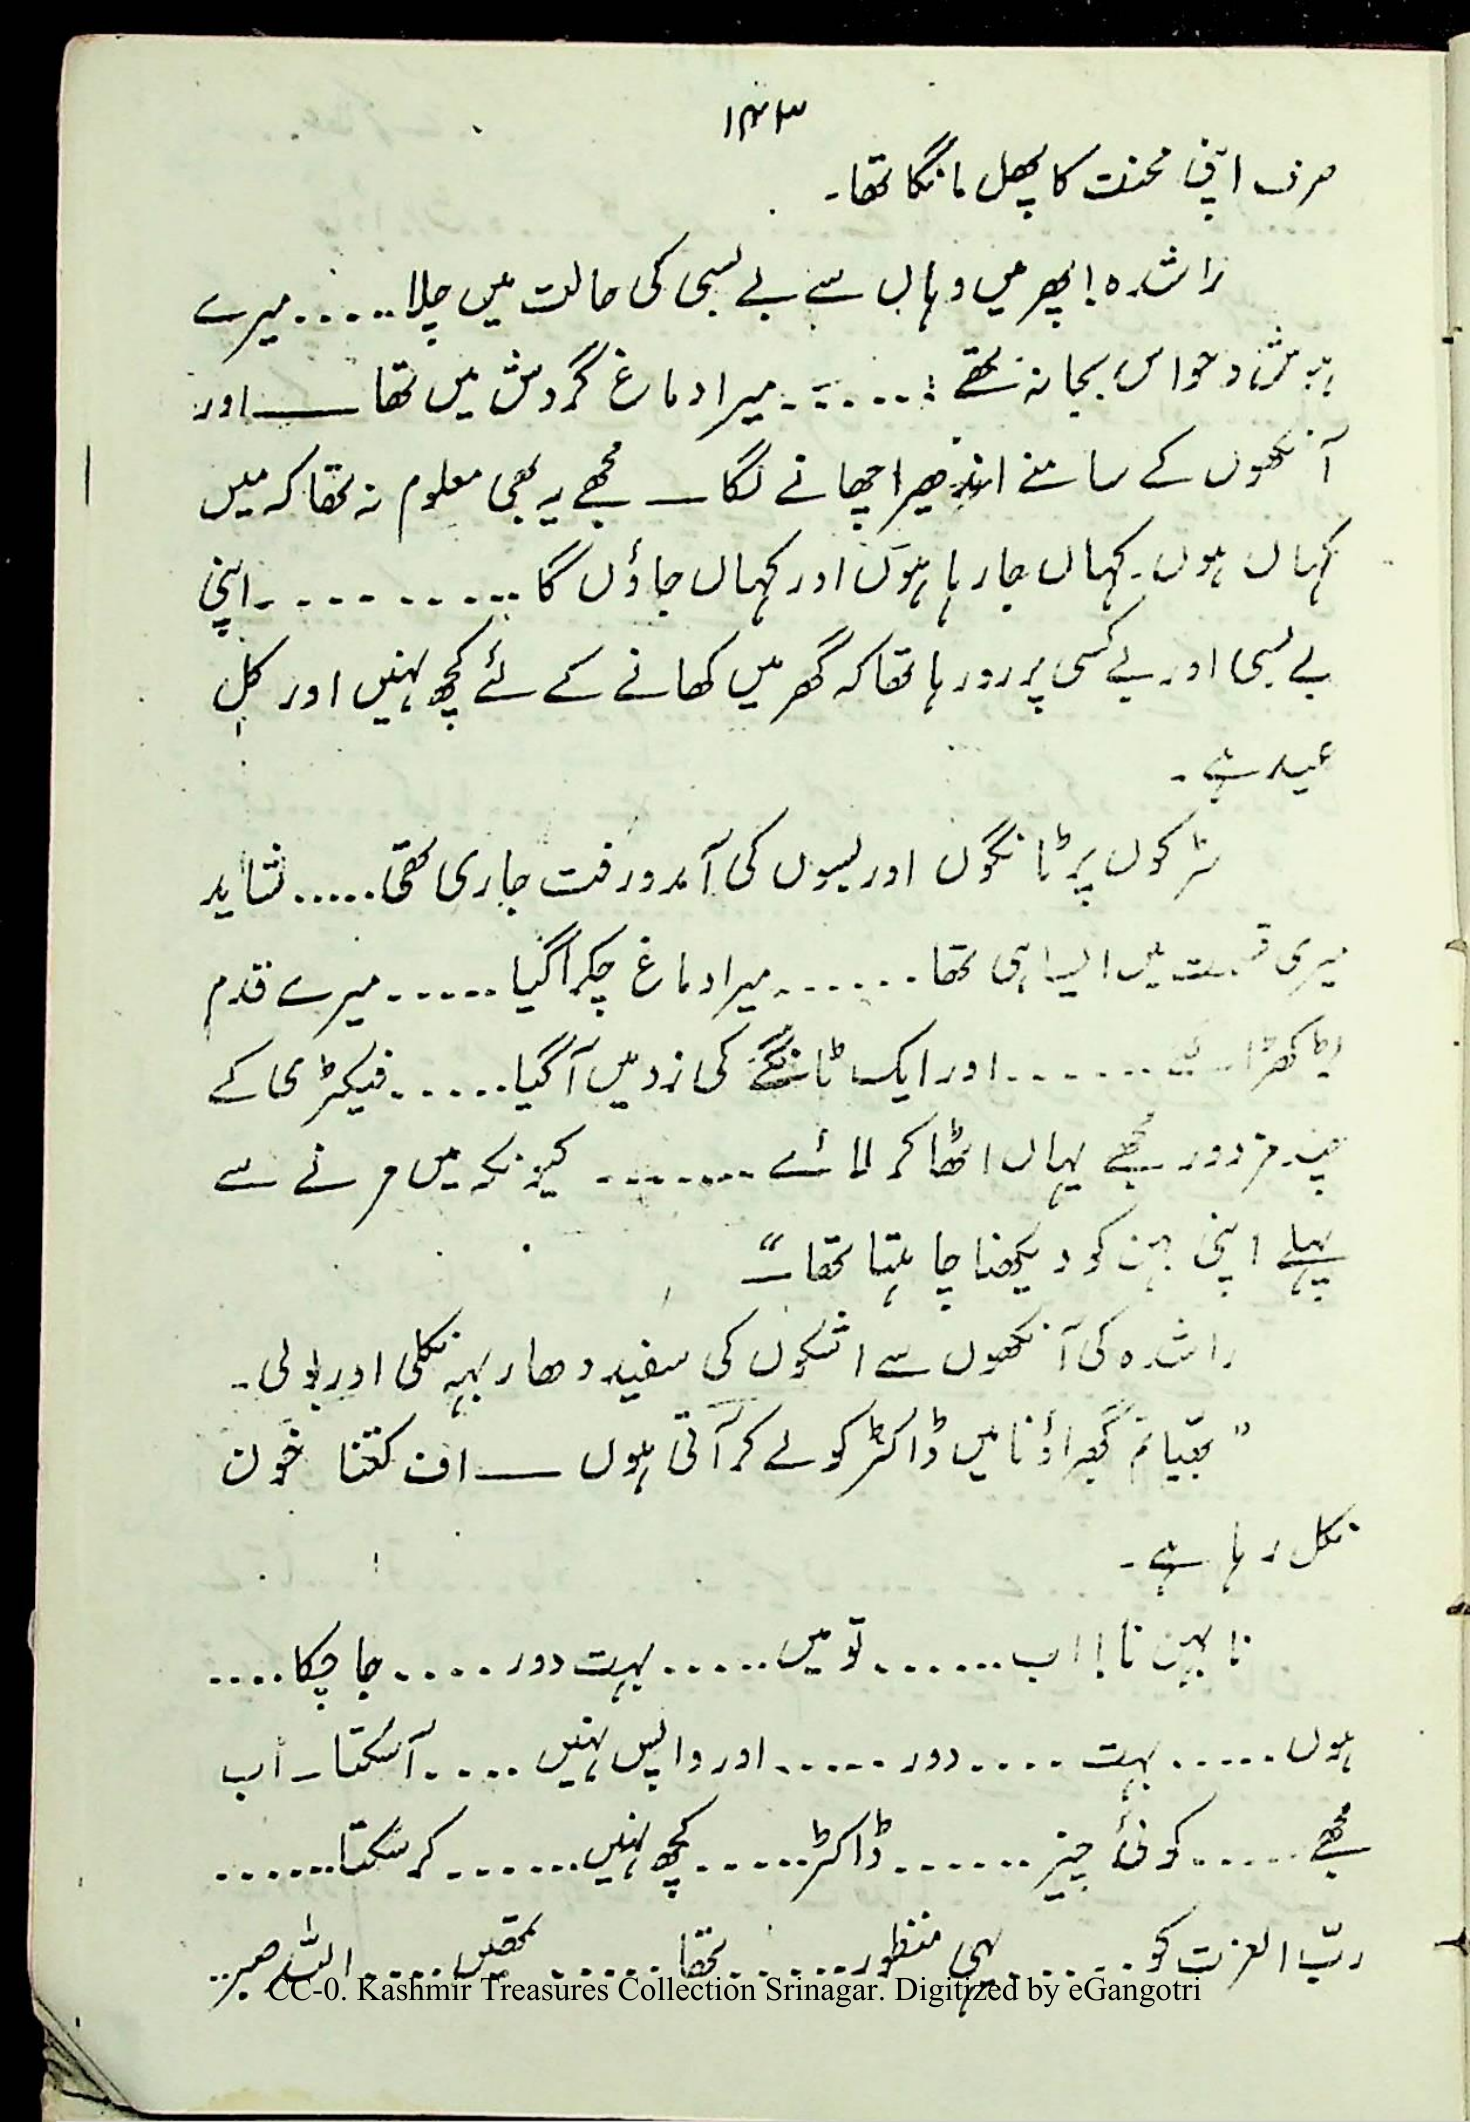 ۱۴۳
صرف اپنی محنت کا پھل مانگا تھا۔
راشدہ! پھر میں وہاں سے بے بسی کی حالت میں چلا ...... میرے
ہوش و حواس بجا نہ تھے ...... میرا دماغ گردش میں تھا ــــ اور
آنکھوں کے سامنے اندھیرا چھانے لگا ــ مجھے یہ بھی معلوم نہ تھا کہ میں
کہاں ہوں۔ کہاں جا رہا ہوں اور کہاں جاؤں گا .......... اپنی
بے بسی اور بے کسی پر رو رہا تھا کہ گھر میں کھانے کے لئے کچھ نہیں اور کل
عید ہے۔
سڑکوں پر ٹانگوں اور بسوں کی آمد و رفت جاری تھی ..... شاید
میری قسمت میں ایسا ہی تھا ....... میرا دماغ چکرا گیا ...... میرے قدم
لڑکھڑا گئے ....... اور ایک ٹانگے کی زد میں آگیا ...... فیکٹری کے
چند مزدور مجھے یہاں اٹھا کر لائے ........ کیونکہ میں مرنے سے
پہلے اپنی بہن کو دیکھنا چاہتا تھا ــ“
راشدہ کی آنکھوں سے اشکوں کی سفید دھار بہہ نکلی اور بولی۔
”بھیّا تم گھبراؤ نا میں ڈاکٹر کو لے کر آتی ہوں ــــ اف کتنا خون
نکل رہا ہے۔
نا بہن نا! اب ....... تو میں ...... بہت دور ..... جا چکا ....
ہوں ...... بہت .... دور ...... اور واپس نہیں .... آسکتا ــ اب
مجھے ...... کوئی چیز ....... ڈاکٹر ...... کچھ نہیں ....... کر سکتا .......
ربّ العزت کو ...... یہی منظور ...... تھا ...... تمھیں ..... اللہ صبر ..
CC-0. Kashmir Treasures Collection Srinagar. Digitized by eGangotri